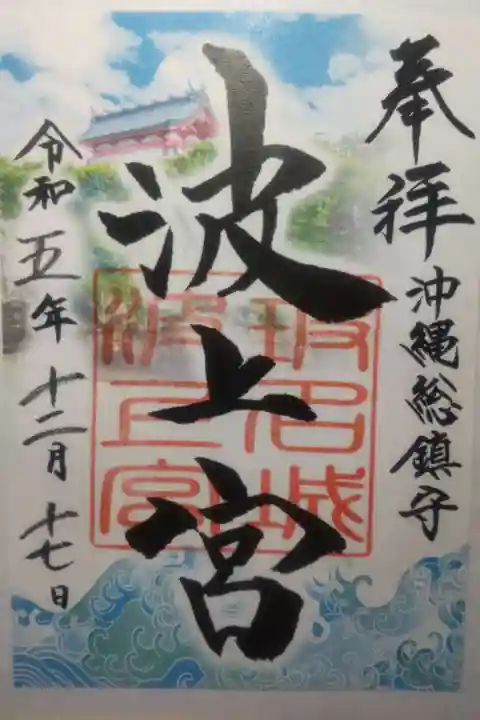 奉拝
沖縄総鎮守
波上宮
波上宮
令和五年十二月十七日